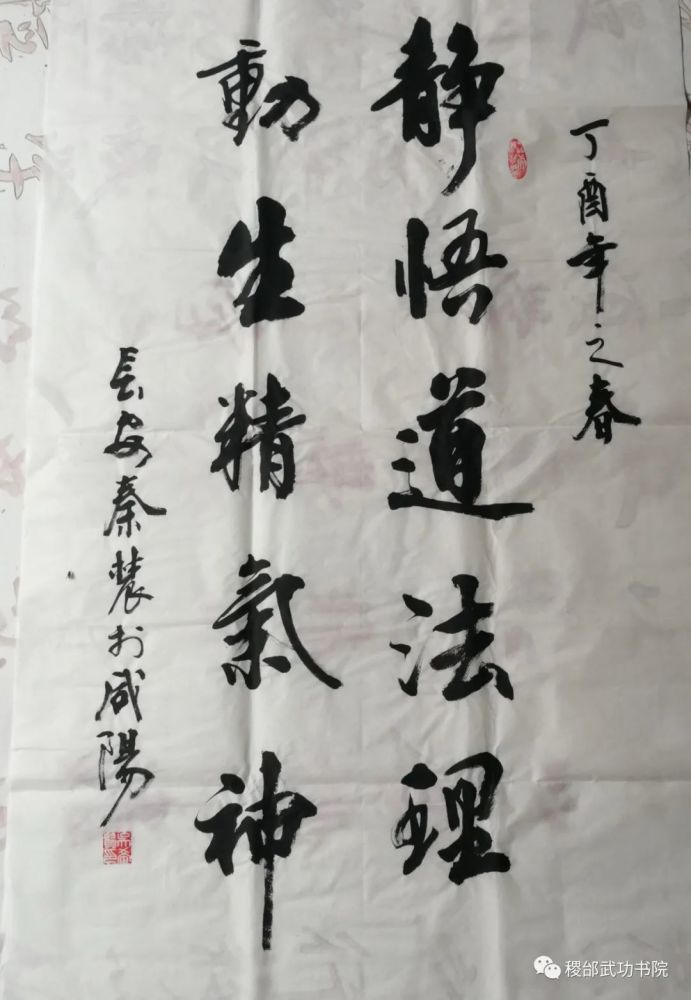 丁酉年之春
静悟道法理
動生精氣神
長安秦農於咸陽
稷邰武功书院